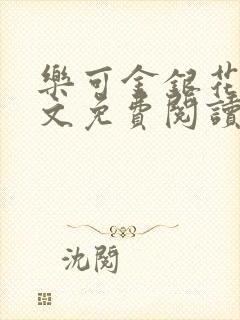 樂可金銀花
文免費閱讀
沈閱